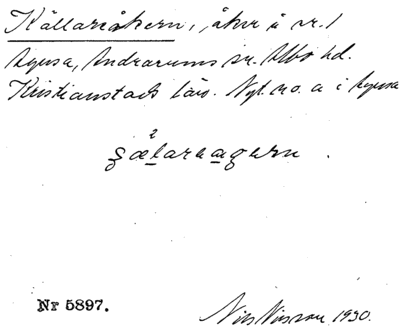 Källaråkern, åker å nr. 1
Lycksa, Andrarums sn. Albo hd.
Kristianstads län. Nyl. no. a i
gælaraagern.
Nr 5897.
Nils Nilsson 1930.